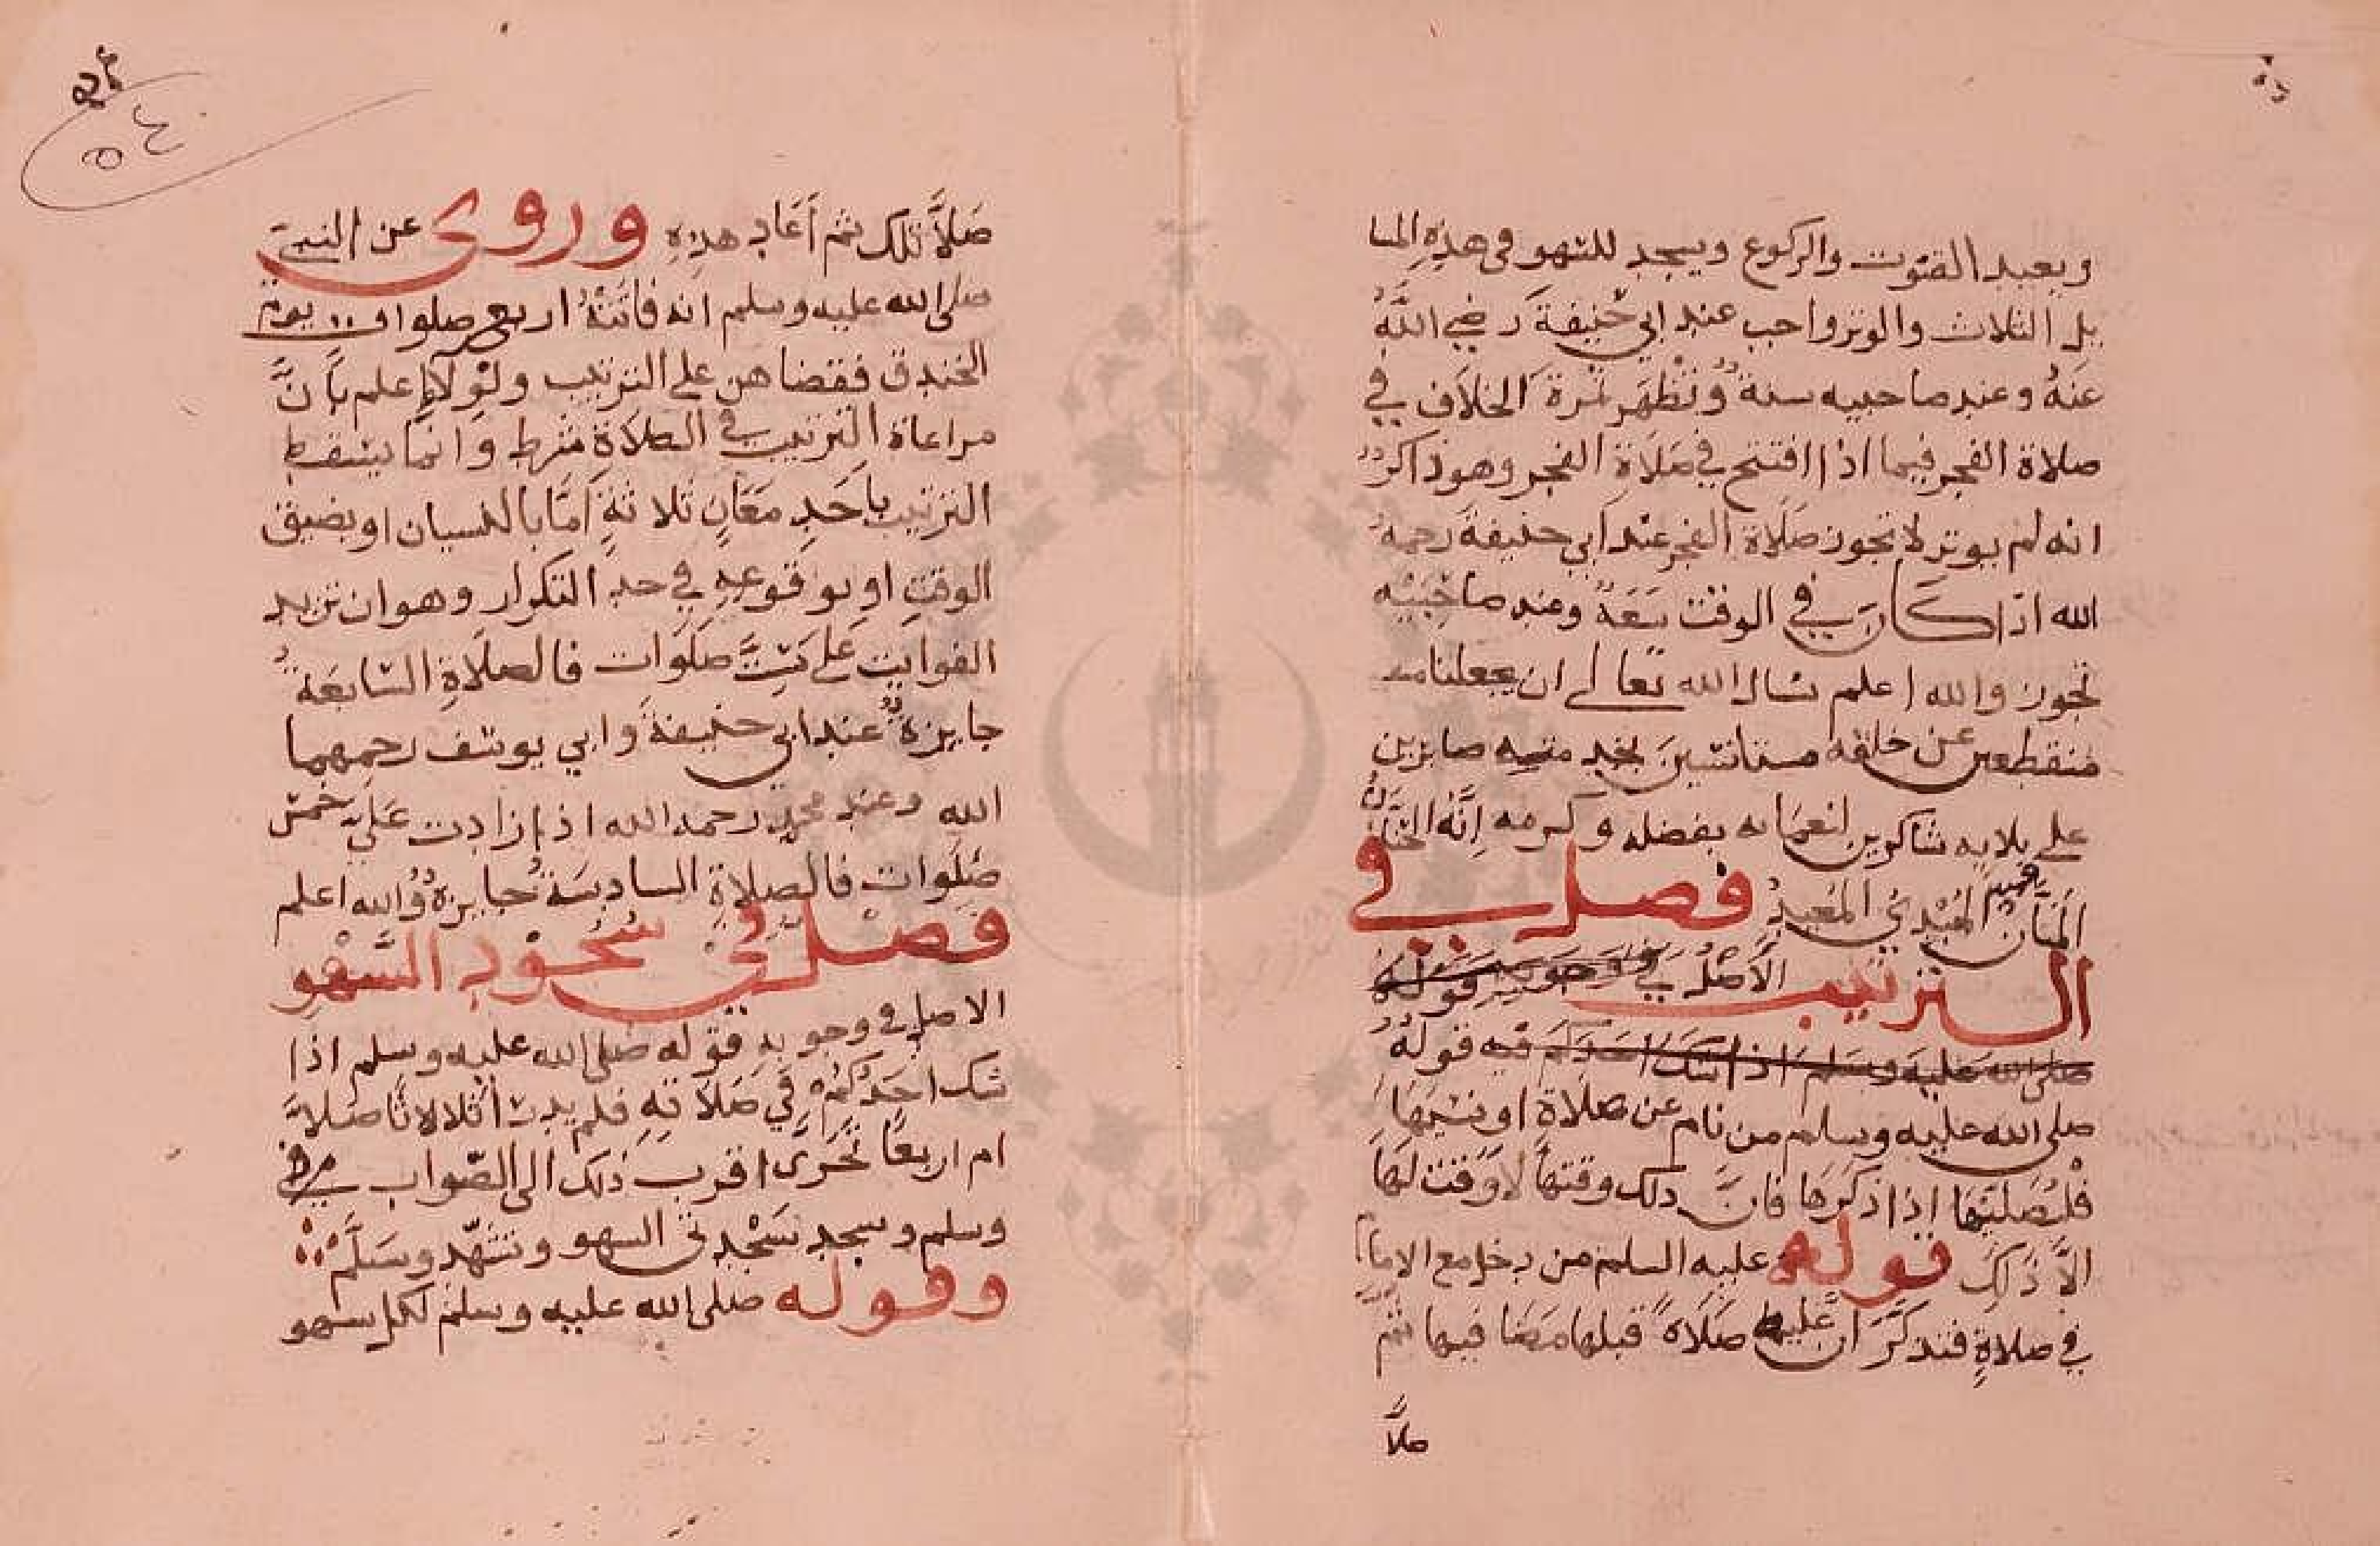 ويعيد القنوت والركوع ويسجد للسهو في هذه المسا
يل الثلاث والوتر واجب عند ابي حَنيفةَ رضي اللَّهُ
عنهُ وعند صاحبيه سنةٌ وتَظْهَر ثمرة الخلاَف في
صلاة الفجر فيما اذا افتتح في صَلَاةِ الفجر وهو ذاكرٌ
انه لم يوتر لا تجوز صَلَاة الفجر عند ابي حنيفةَ رحمهُ
الله اذا كَانَ في الوقت سَعَةٌ وعند صاحبَيْه
تجوز والله اعلم نسال الله تعالى ان يجعلنا من
منقطعين عن خلقه مستانسين صابرين
على بلايه شاكرين انعمانه بفضله وكرمه إنَّهُ
المنَّان المُبْدِئ المُعيد فصل في
الترتيب الأَصْلُ في وجوبه قوله
صلى الله عليه وسَلم اذا شك احدكم فيه قولهُ
صلى الله عليه وسلم من نام عن صلاة او نسيَهَا
فلْيُصَليّهَا اذا ذكرَهَا فانَّ ذلك وقتهَا لاوَقتَ لهَا
الاَّ ذَلكَ قوله عليه السلم من دخل مع الامام
في صلاةٍ فتذكَّرَ ان عليه صَلَاةً قبلها مضا فيها ثم
صلاَّ
٥٤
صَلاَّ تلك ثم أَعَاد هذِهِ وروى عن النبي
صلى الله عليه وسلم انه فاتَتْهُ اربع صلوات يوم
الخندق فقضاهن على الترتيب ولولا علم بأَنَّ
مراعاة الترتيب في الصَّلاَةِ شرط وانما يسقط
الترتيب باحَدِ مَعَانٍ ثلاثةٍ اَمَّا بالنسيان او بضيق
الوقتِ او بوقوعهِ في حد التكرار وهو ان تزيد
الفوايت على سِتِّ صَلَوات فالصلَاةِ السَّابعَةُ
جايزةٌ عند ابي حنيفةَ وابي يوسف رحمهما
الله وعند محمد رحمه الله اذا زادت عَلَى خمس
صَلَوات فالصلاةِ السادسَةُ جايزةٌ والله اعلم
فصل في سُجُوْدِ السَّهْوِ
الاصل في وجوبه قوله صلى الله عليه وسلم اذا
شك احَدُكُمْ في صَلاَتهِ فلم يدر أثلاثًا صَلاَّ
ام اربعًا تَحَرَّى اقرب ذلك الى الصَّواب
وسلم وسجد سَجْدتي السهو وتشهّد وسَلَّمَ
وقوله صلى الله عليه وسلم لكل سهو